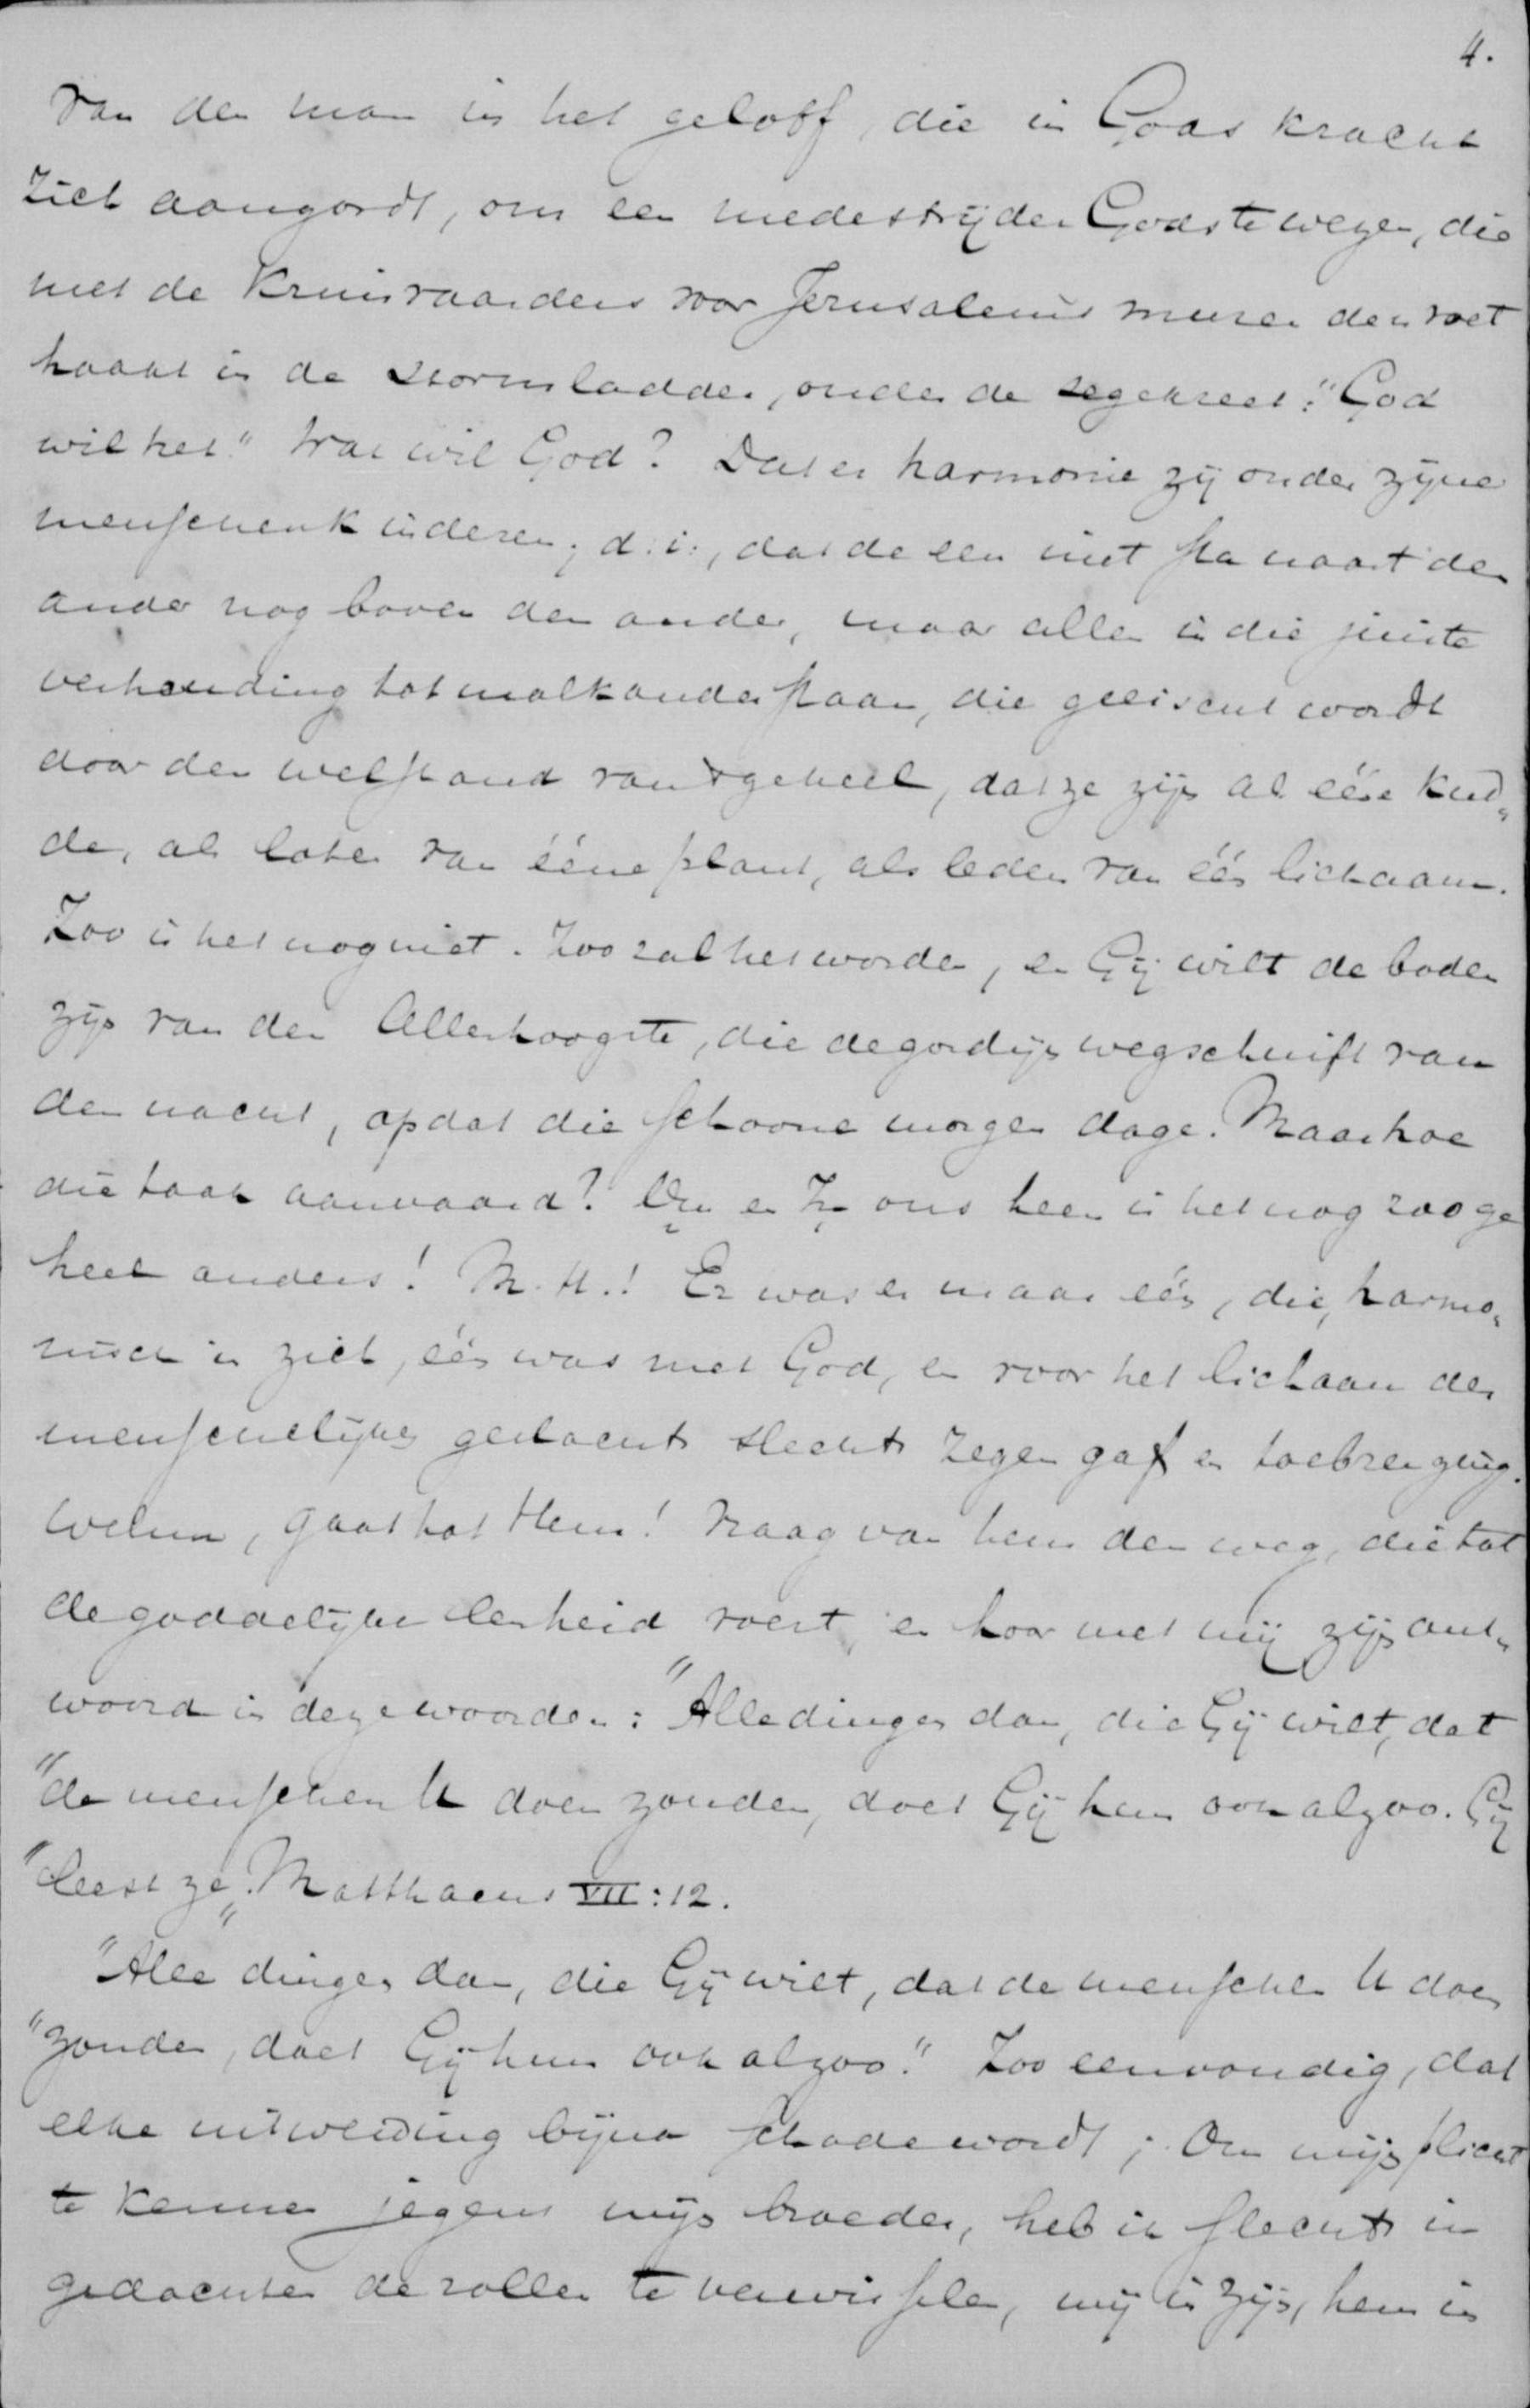 4.
van den man in het geloof, die in Gods kracht
zich aangordt, om een medestrijder Gods te wezen, die
met de kruisvaarders voor Jerusalems muren den voet
haakt in de stormladder, onder de zegekreet: "God
wil het." Wat wil God? Dat er harmonie zij onder zijne
menschenkinderen; d.i., dat de een niet sta naast den
ander nog boven den ander, maar allen in die juiste
verhouding tot malkander staan, die geeischt wordt
door den welstand van 't geheel, dat ze zijn als ééne kud„
de, als loten van ééne plant, als leden van één lichaam.
Zoo is het nog niet. Zoo zal het worden, en Gij wilt de boden
zijn van den Allerhoogste, die de gordijn wegschuift van
den nacht, opdat die schoone morgen dage. Maar hoe
die taak aanvaard? Om en In ons heen is het nog zoo ge
heel anders! M.H.! Er was er maar één, die, harmo„
nisch in zich, één was met God, en voor het lichaam des
menschelijken geslachts slechts zegen gaf en toebrenging.
Welnu, gaat tot Hem! Vraag van hem den weg, die tot
de goddelijke eenheid voert, en hoor met mij zijn ant„
woord in deze woorden: "Alle dingen dan, die Gij wilt, dat
"de menschen U doen zouden, doet Gij hun ook alzoo. Gij
"leest ze" Matthaeus VII:12.
"Alle dingen dan, die Gij wilt, dat de menschen U doen
"zouden, doet Gij hun ook alzoo." Zoo eenvoudig, dat
elke uitweiding bijna schade wordt; Om mijn plicht
te kennen jegens mijn broeder, heb ik slechts in
gedachten de rollen te verwisselen, mij in zijn, hem in